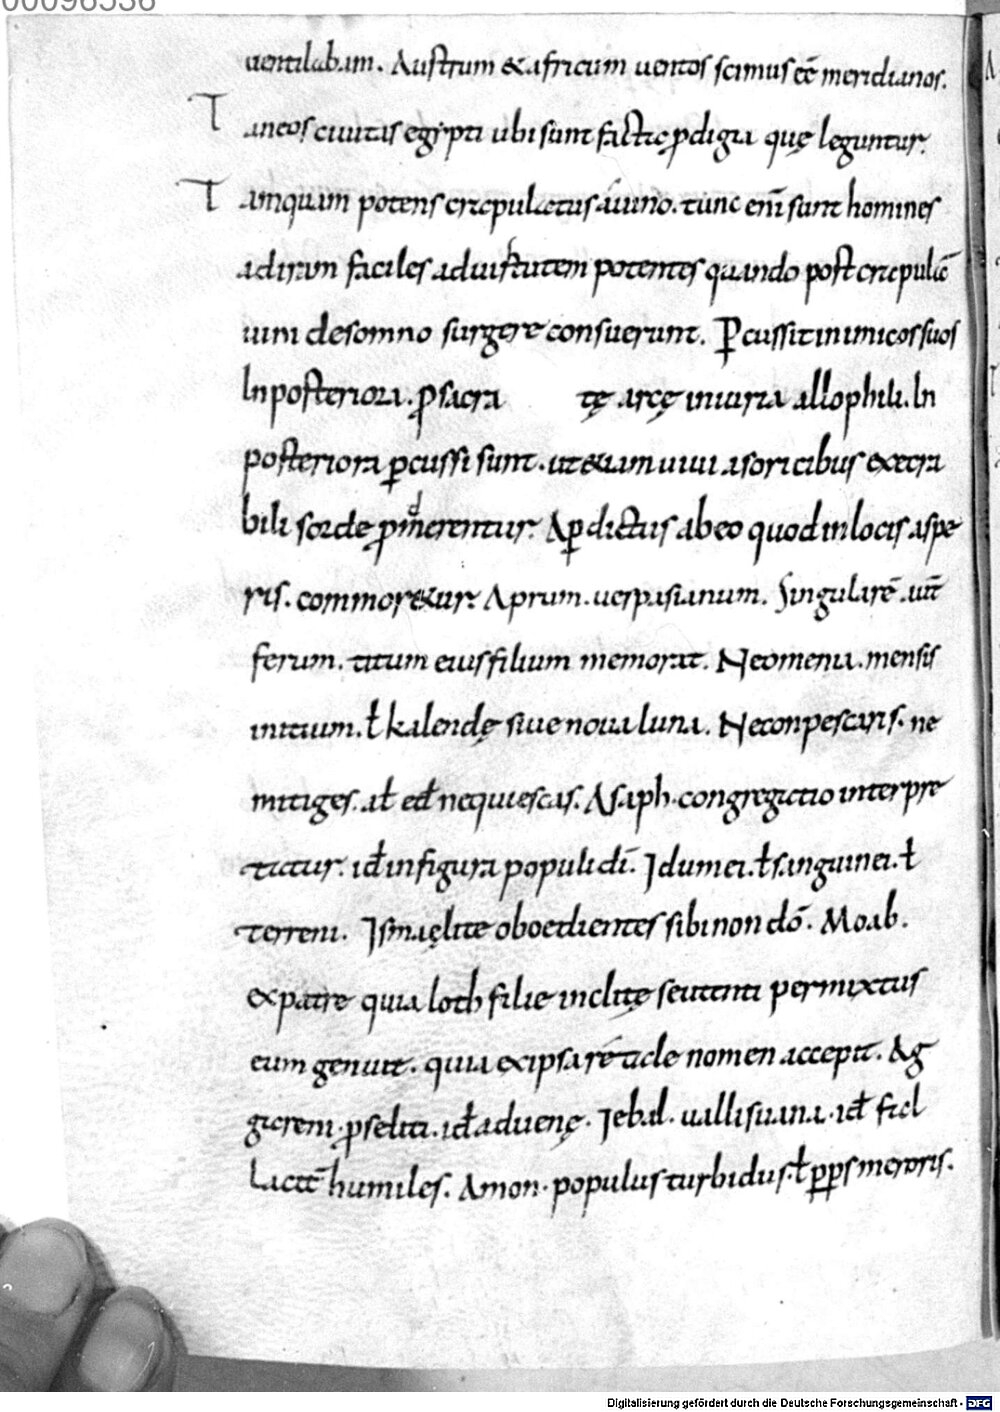 00096536
uentilabam. Austrum & africum uentos scimus eē meridianos.
Taneos ciuitas egypti ubi sunt factę pdigia quę leguntur.
Tamquam potens crepulatus a uino. tunc enī sunt homines
ad iram faciles ad uirtutem potentes quando post crepulā
uini de somno surgere consuerunt. Pcussit inimicos suos
In posteriora. p sacra tę arcę iniuria allophili. In
posteriora pcussi sunt. ut & iam uiui a soricibus execra
bili sorde pmerentur. Ap dictus ab eo quod in locis aspe
ris. commor&ur. Aprum. uespasianum. Singularē aut̄
ferum. titum eius filium memorat. Neomenia. mensis
initium. ł kalendę siue noua luna. Ne conpescaris. ne
mitiges. al ed ne quiescas. Asaph. congregatio interpre
tatur. id in figura populi dī. Idumei. ł sanguinei. ł
terreni. Ismaęlite oboedientes sibi non dō. Moab.
ex patre quia loth filie inclitę seu tinti permixtus
eum genuit. quia ex ipsa rē tale nomen accepit. Ag
gareni pseliti. id aduenę. Iebal. uallis uana. id fal
laciter humiles. Amon. populus turbidus. ł pps meroris.
Digitalisierung gefördert durch die Deutsche Forschungsgemeinschaft - DFG